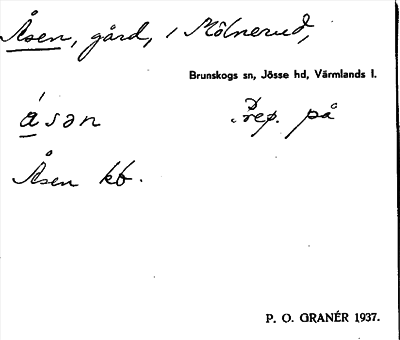 Åsen, gård, i Mölnerud,
Brunskogs sn, Jösse hd, Värmlands l.
ásən prep. på
Åsen kb.
P. O. GRANÉR 1937.